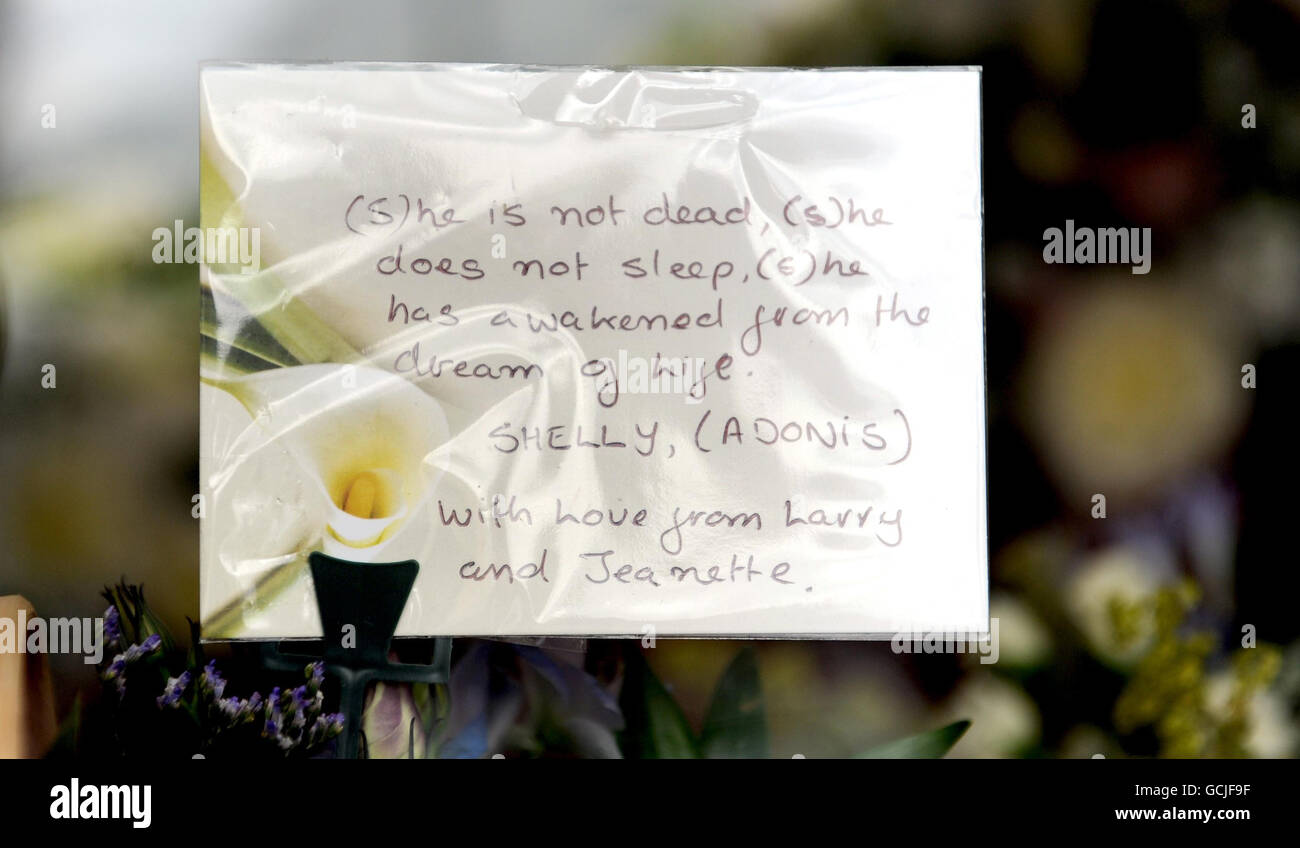 (S)he is not dead, (s)he
does not sleep, (s)he
has awakened from the
dream of Life.
SHELLY, (ADONIS)
with Love from Larry
and Jeanette.
alamy
alamy stock photo
GCJF9F
www.alamy.com